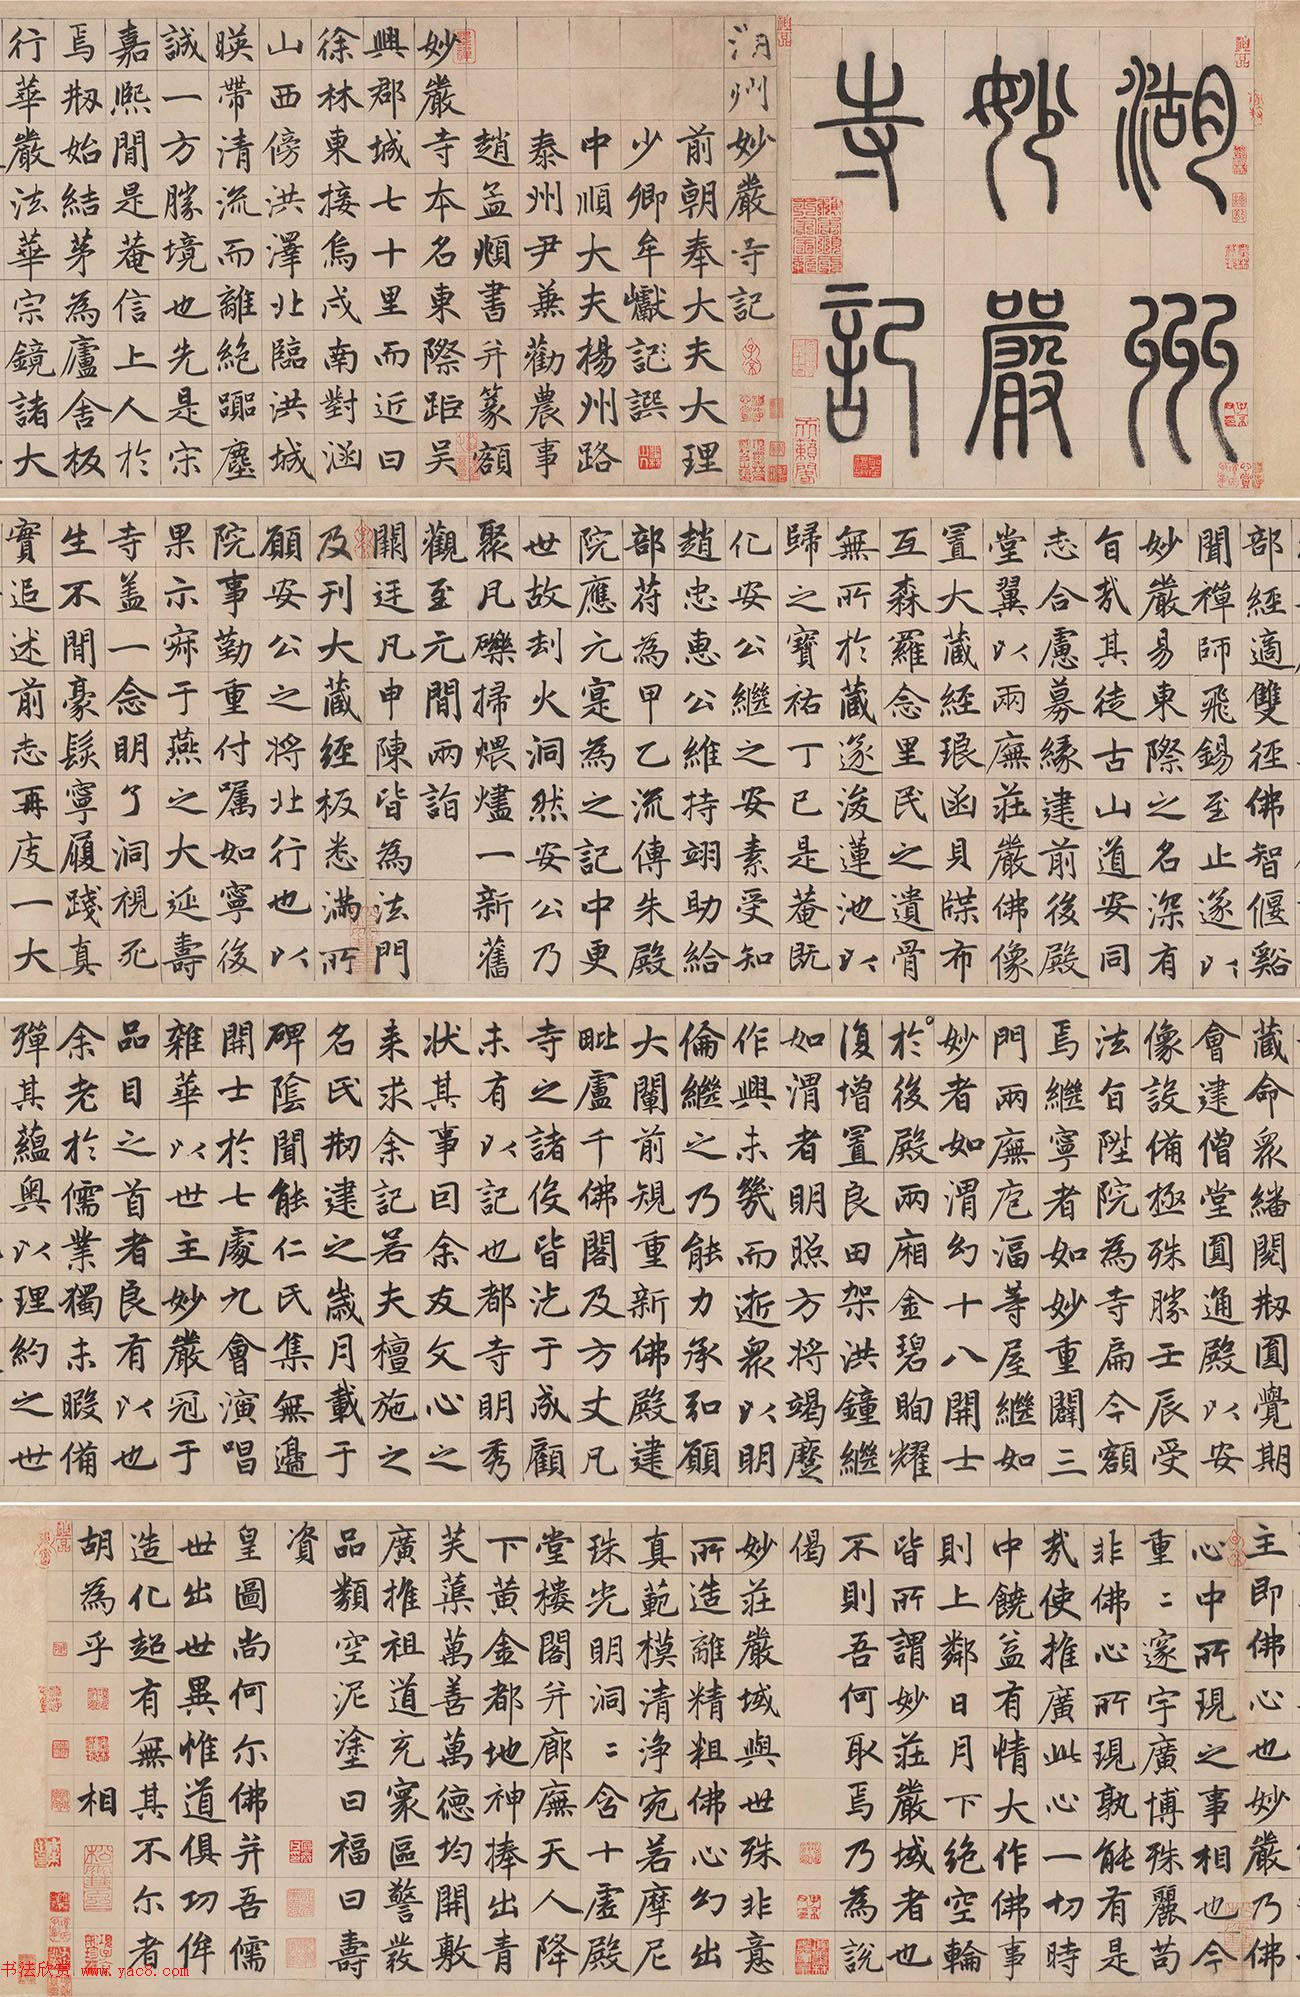 湖州
妙嚴
寺記
湖州妙嚴寺記
前朝奉大夫大理
少卿牟巘記譔
中順大夫楊州路
泰州尹兼勸農事
趙孟頫書并篆額
妙嚴寺本名東際距吳
興郡城七十里而近曰
徐林東接烏戍南對涵
山西傍洪澤北臨洪城
暎帶清流而離絕躢塵
誠一方勝境也先是宋
嘉熙間是菴信上人於
焉刱始結茅為廬舍板
行華嚴法華宗鏡諸大
部經適雙徑佛智偃谿
聞禪師飛錫至止遂以
妙嚴易東際之名深有
旨哉其徒古山道安同
志合慮募緣建前後殿
堂翼以兩廡莊嚴佛像
置大藏經琅函貝牒布
互森羅念里民之遺骨
無所於藏遂浚蓮池以
歸之寶祐丁巳是菴既
化安公繼之安素受知
趙忠惠公維持翊助給
部苻為甲乙流傳朱殿
院應元寔為之記中更
世故刦火洞然安公乃
聚凡礫掃煨燼一新舊
觀至元間兩詣
闕廷凡申陳皆為法門
及刊大藏經板悉滿所
願安公之將北行也以
院事勤重付囑如寧後
果示寂于燕之大延壽
寺盖一念明了洞視死
生不間豪髮寧履踐真
實追述前志再度一大
藏命眾繙閱刱圓覺期
會建僧堂圓通殿以安
像設備極殊勝壬辰受
法旨陞院為寺扁今額
焉繼寧者如妙重闢三
門兩廡庖湢等屋繼如
妙者如渭幻十八開士
於後殿兩廂金碧眴耀
復增置良田架洪鐘繼
如渭者明照方將竭麼
作興未幾而逝眾以明
倫繼之乃能力承弘願
大闡前規重新佛殿建
毗盧千佛閣及方丈凡
寺之諸役皆汔于成顧
未有以記也都寺明秀
狀其事囙余友文心之
来求余記若夫檀施之
名氏刱建之歲月載于
碑陰聞能仁氏集無邊
開士於七處九會演唱
雜華以世主妙嚴冠于
品目之首者良有以也
余老於儒業獨未暇備
殫其蘊奧以理約之世
主即佛心也妙嚴乃佛
心中所現之事相也今
重重邃宇廣博殊麗苟
非佛心所現孰能有是
哉使推廣此心一切時
中饒益有情大作佛事
則上鄰日月下絕空輪
皆所謂妙莊嚴域者也
不則吾何取焉乃為說
偈
妙莊嚴域與世殊非意
所造離精粗佛心幻出
真範模清淨宛若摩尼
珠光明洞洞含十虛殿
堂樓閣并廊廡天人降
下黃金都地神捧出青
芙蕖萬善萬德均開敷
廣推祖道充寰區警發
品類空泥塗曰福曰壽
資
皇圖尚何尔佛并吾儒
世出世異惟道俱功侔
造化超有無其不尔者
胡為乎 相
书法欣赏 www.yac8.com